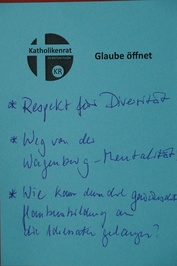 Katholikenrat
KR
Glaube öffnet
* Respekt für Diversität
* Weg von der
Wagenburg-Mentalität
* Wie kann denn die
Glaubensbildung an
die Adressaten gelangen?